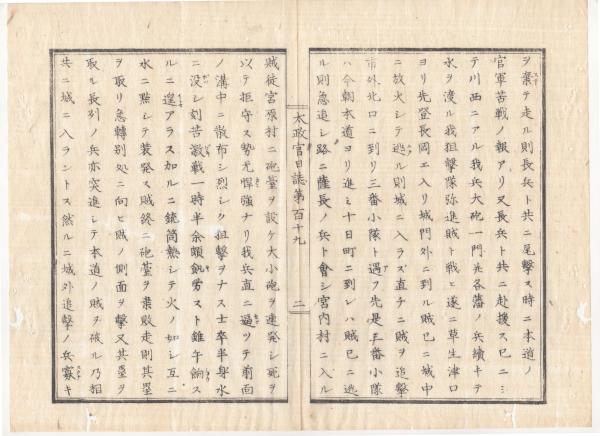 ヲ棄テ走ル則長兵ト共ニ尾撃ス時ニ本道ノ
官軍苦戦ノ報アリ又長兵ト共ニ赴援ス已ニ
テ川西ニアル我兵大砲一門先各藩ノ兵續キテ
水ヲ渡ル我狙撃隊弥進賊ト戦ヒ遂ニ草生津口
ヨリ先登長岡エ入リ城門外ニ到ル賊已ニ城中
ニ放火シテ逃ル則城ニ入ラス直チニ賊ヲ追撃
市外北口ニ到リ三番小隊ト遇フ先是三番小隊
ハ今朝本道ヨリ進ミ十日町ニ到レハ賊已ニ逃
ル則急追シ路ニ薩長ノ兵ト會シ宮内村ニ入ル
太政官日誌第百十九
二
賊徒宮原村ニ砲䑓ヲ設ケ大小砲ヲ連発シ死ヲ
以テ拒守ス勢尤悍強ナリ我兵直ニ逼ツテ前面
ノ溝中ニ散布シ烈シク狙撃ヲナス士卒半身水
ニ没シ刻苦激戦一時半余頗飢労スト雖午餉ス
ルニ遑アラス加ルニ銃筒熱シテ火ノ如シ互ニ
水ニ點シテ装発ス賊終ニ砲䑓ヲ棄敗走則其塁
ヲ取リ急轉別処ニ向ヒ賊ノ側面ヲ撃又其塁ヲ
取ル長別ノ兵亦突進シテ本道ノ賊ヲ破ル乃相
共ニ城ニ入ラントス然ルニ城外追撃ノ兵寡キ